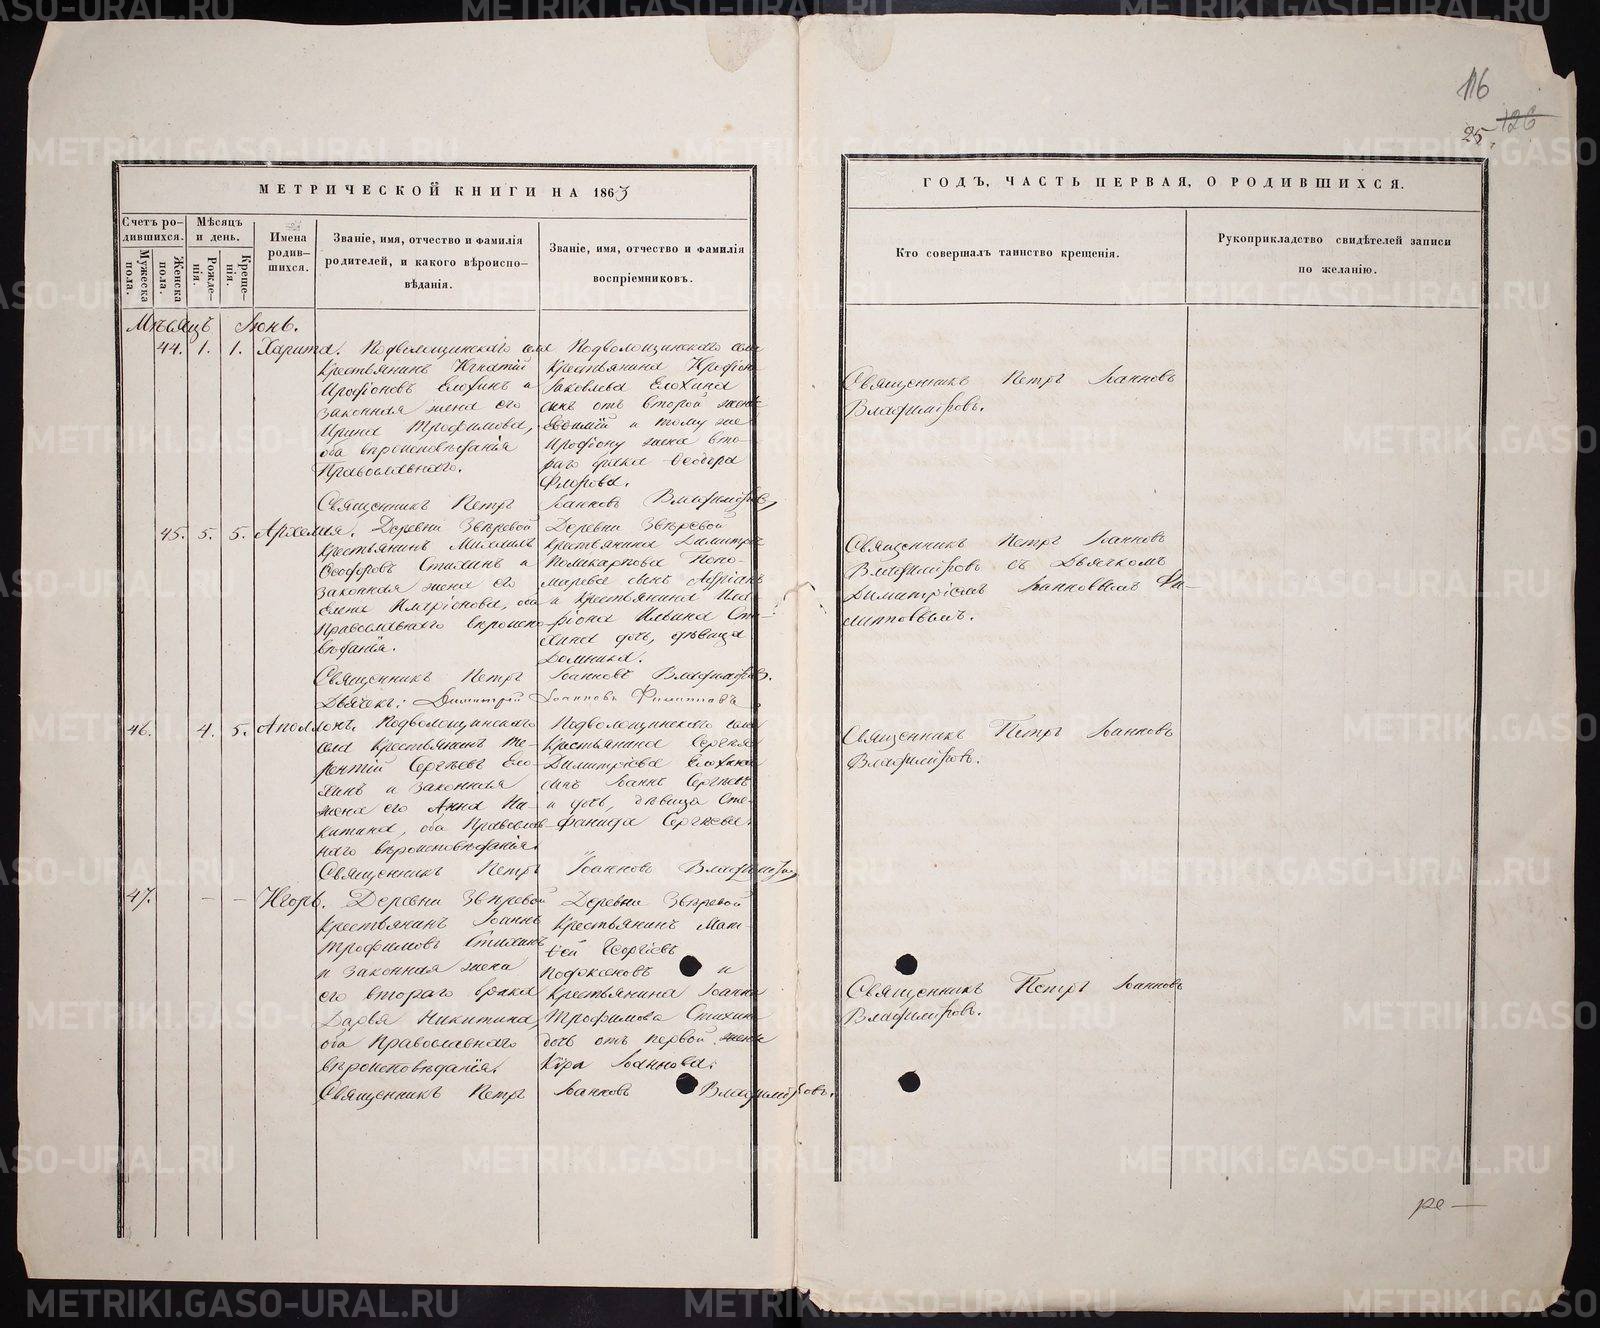 116
25.
126
МЕТРИЧЕСКОЙ КНИГИ НА 1863
ГОДЪ, ЧАСТЬ ПЕРВАЯ, О РОДИВШИХСЯ.
Счетъ ро-
дившихся.
Мужеска
пола.
Женска
пола.
Мѣсяцъ
и день.
Рожде-
нія.
Креще-
нія.
Имена
родив-
шихся.
Званіе, имя, отчество и фамилія
родителей, и какого вѣроиспо-
вѣданія.
Званіе, имя, отчество и фамилія
воспріемниковъ.
Кто совершалъ таинство крещенія.
Рукоприкладство свидѣтелей записи
по желанію.
Мѣсяцъ Іюнь.
44. 1. 1. Харита. Подволошинскаго села
крестьянинъ Игнатій
Ирофіоновъ Елохинъ и
законная жена его
Ирина Трофимова,
оба вѣроисповѣданія
Православнаго.
Подволошинскаго села
крестьянина Ирофіона
Іаковлева Елохина
сынъ отъ второй жены
Евѳимій и тому же
Ирофіону жена вто-
раго брака Ѳеодора
Флорова.
Священникъ Петръ Іоанновъ Владиміровъ.
Священникъ Петръ Іоанновъ
Владиміровъ.
45. 5. 5. Архелия. Деревни Звѣревой
крестьянинъ Михаилъ
Ѳеодоровъ Стихинъ и
законная жена его
Елена Иларіонова, оба
Православнаго вѣроиспо-
вѣданія.
Деревни Звѣревой
крестьянина Димитрія
Поликарпова Поно-
марева сынъ Адріанъ
и крестьянина Ила-
ріона Ильина Сти-
хина дочь, дѣвица
Домника.
Священникъ Петръ Іоанновъ Владиміровъ.
Дьячекъ: Димитрій Іоанновъ Филипповъ
Священникъ Петръ Іоанновъ
Владиміровъ съ Дьячкомъ
Димитріемъ Іоанновымъ Фи-
липповымъ.
46. 4. 5. Аполлонъ. Подволошинскаго
села крестьянинъ Те-
рентій Сергѣевъ Ело-
хинъ и законная
жена его Анна Ни-
китина, оба Православ-
наго вѣроисповѣданія.
Подволошинскаго села
крестьянина Сергія
Димитріева Елохина
сынъ Іоаннъ Сергѣевъ
и дочь, дѣвица Сте-
фанида Сергѣева.
Священникъ Петръ Іоанновъ Владиміровъ
Священникъ Петръ Іоанновъ
Владиміровъ.
47. – – Игорь. Деревни Звѣревой
крестьянинъ Іоаннъ
Трофимовъ Стихинъ
и законная жена
его втораго брака
Дарья Никитина,
оба Православнаго
вѣроисповѣданія.
Деревни Звѣревой
крестьянинъ Мат-
ѳей Георгіевъ
и
крестьянина Іоанна
Трофимова Стихина
дочь отъ первой жены
Кѵра Іоаннова.
Священникъ Петръ Іоанновъ Владиміровъ.
Священникъ Петръ Іоанновъ
Владиміровъ.
ре—
METRIKI.GASO-URAL.RU